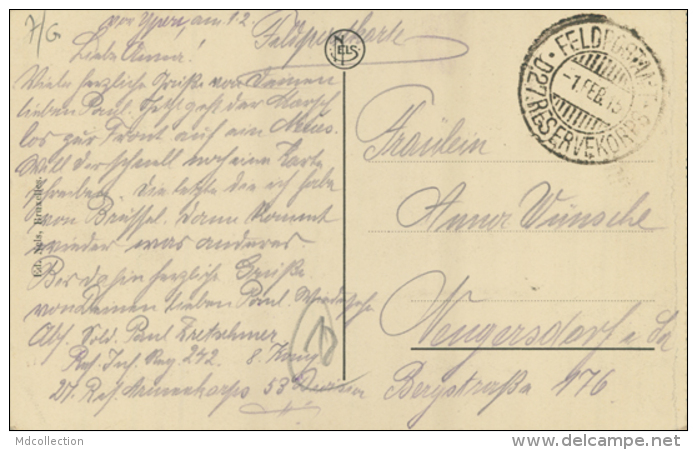 7/G
vor Ypern, am 1.2.
Feldpostkarte
Liebe Anna!
Viele herzliche Grüße von Deinem
lieben Paul. Jetzt geht der Marsch
los zur Front auf ein Neues.
Will Dir schnell noch eine Karte
schreiben. Die letzte die ich habe
von Brüssel. Dann kommt
wieder was anderes.
Bis dahin herzliche Grüße
von Deinem lieben Paul. Wiedersehe
Abs. Sold. Paul
Res. Inf. Reg. 242. 8. Komp.
27. Res. Armeekorps 53
NELS
Ed. Nels, Bruxelles.
FELDPOSTAMT
-1.FEB.15
D.27.RESERVEKORPS
Fräulein
Anna Wünsche
Neugersdorf i. Sa
Bergstraße 176
Mdcollection
www.delcampe.net